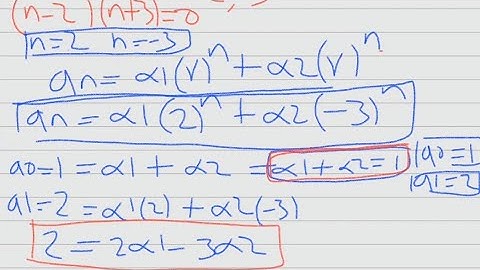 (n-2)(n+3)=0
n=2 n=-3
an=α1(r)^n+α2(r)^n
an=α1(2)^n+α2(-3)^n
a0=1=α1+α2=α1+α2=1
a0=1
a1=2
a1=2=α1(2)+α2(-3)
2=2α1-3α2